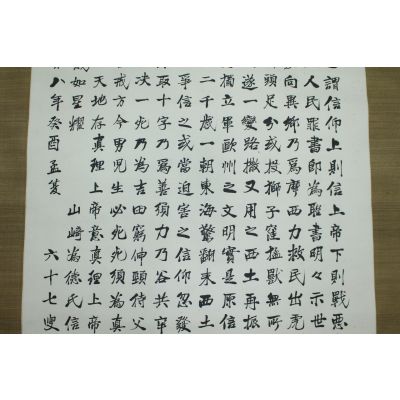 謂信仰上則信上帝下則戰悪
人民罪書即為聖書明々示世
向異郷乃為摩西力救民出虎
頭足分或投獅子窟猛獣無所
遂一變路撒又用之西土再振
獨立軍歐州之文明實是原信
二千歳一朝東海驚翻東西土
爭信之或當迫害之信仰忽發
取十字乃為善須力乃谷共穽
决一死乃為吉田窮伸頭待父
戒方今男児生必死死須為真
天地存真理上帝意真理上帝
如星耀 山崎為徳氏信
八年癸酉孟夏 六十七叟